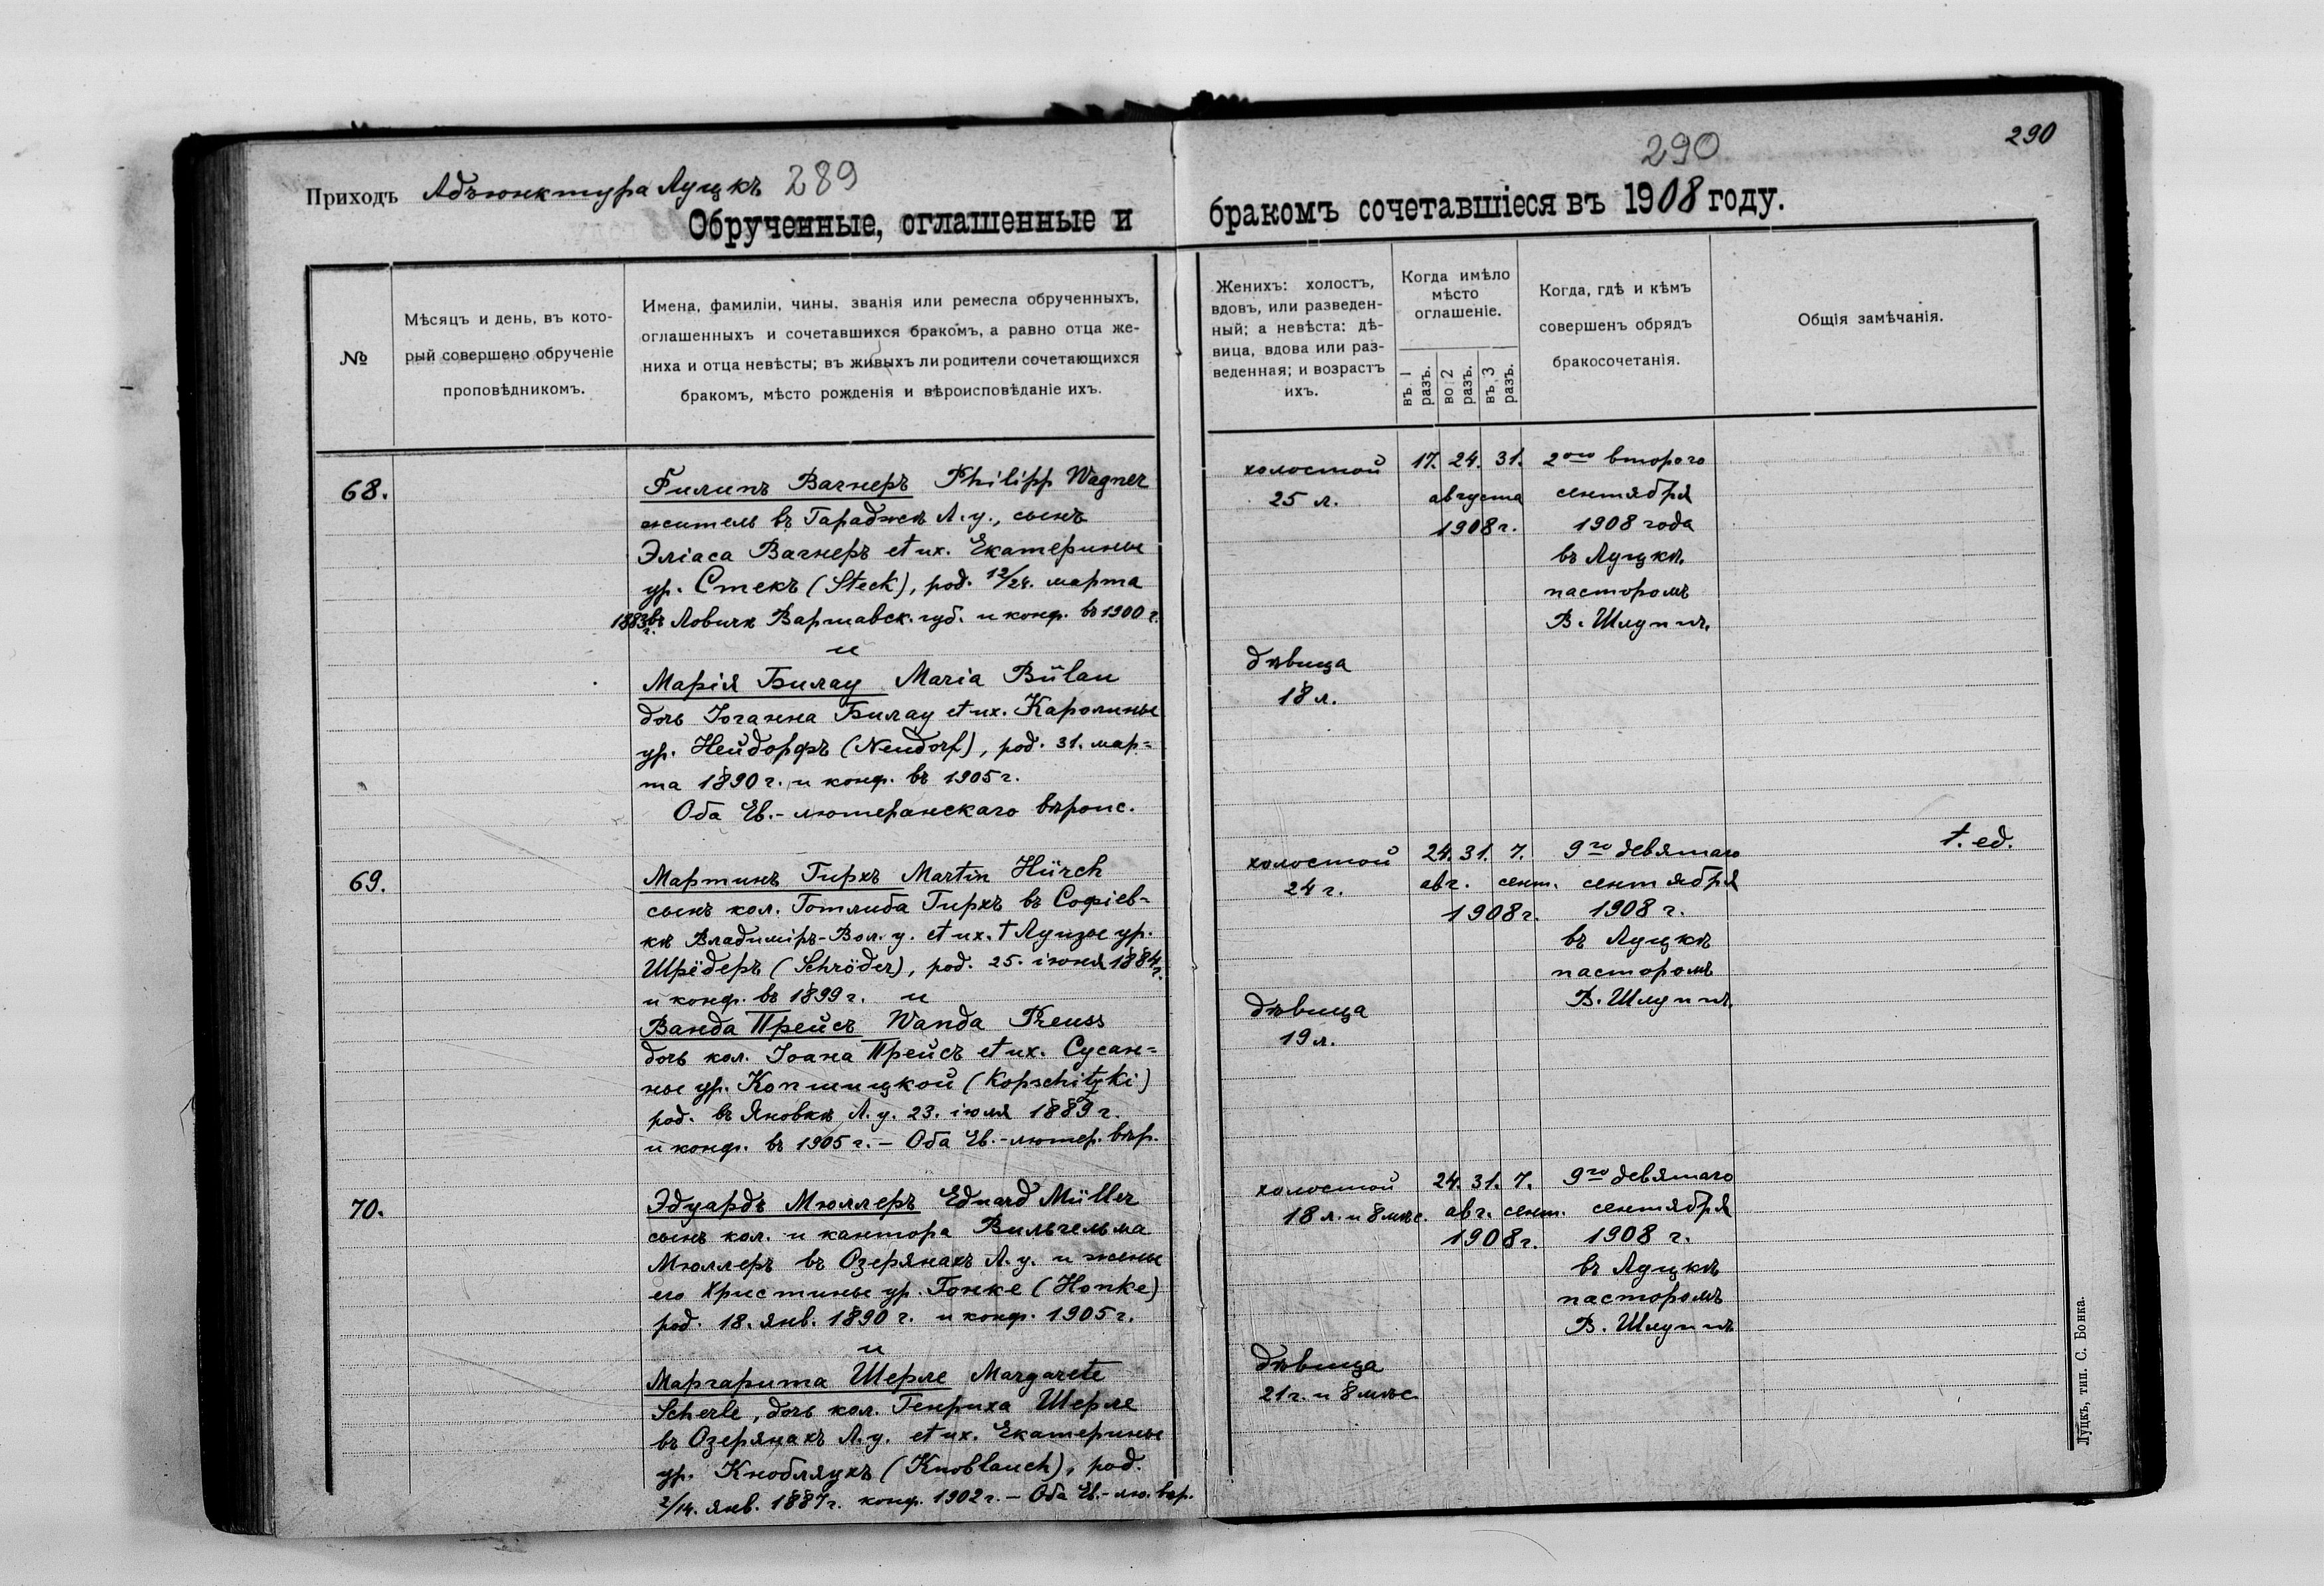 Приходъ Адъюнктура Луцкъ 289
Обрученные, оглашенные и
№
Мѣсяцъ и день, въ кото-
рый совершено обрученіе
проповѣдникомъ.
Имена, фамиліи, чины, званія или ремесла обрученныхъ,
оглашенныхъ и сочетавшихся бракомъ, а равно отца же-
ниха и отца невѣсты; въ живыхъ ли родители сочетающихся
бракомъ, мѣсто рожденія и вѣроисповѣданіе ихъ.
68.
Филипъ Вагнеръ Philipp Wagner
житель въ Гараджѣ Л. у., сынъ
Эліаса Вагнеръ et ux. Екатерины
ур. Стекъ (Steck), род. 12/24. марта
1883 г. въ Ловичѣ Варшавск. губ. и конф. въ 1900 г.
и
Марія Билау Maria Bülau
дочь Іоганна Билау et ux. Каролины
ур. Нейдорфъ (Neudorf), род. 31. мар=
та 1890 г. и конф. въ 1905 г.
Оба Ев.-лютеранскаго вѣроис.
69.
Мартинъ Гирхъ Martin Hürch
сынъ кол. Готлиба Гирхъ въ Софіев-
кѣ Владиміръ-Вол. у. et ux. † Луизы ур.
Шрёдеръ (Schröder), род. 25. іюня 1884 г.
и конф. въ 1899 г. и
Ванда Прейсъ Wanda Preuss
дочь кол. Іоана Прейсъ et ux. Сусан=
ны ур. Копшицкой (Kopschitzki)
род. въ Яновкѣ Л. у. 23. іюля 1889 г.
и конф. въ 1905 г. — Оба Ев.-лютер. вѣр.
70.
Эдуардъ Мюллеръ Eduard Müller
сынъ кол. и кантора Вильгельма
Мюллеръ въ Озерянахъ Л. у. и жены
его Христины ур. Гонке (Honke)
род. 18. янв. 1890 г. и конф. 1905 г.
и
Маргарита Шерле Margarete
Scherle, дочь кол. Генриха Шерле
въ Озерянахъ Л. у. et ux. Екатерины
ур. Кнобляухъ (Knoblauch), род.
2/14. янв. 1887 г. конф. 1902 г. — Оба Ев.-лю. вѣр.
290
290
бракомъ сочетавшіеся въ 1908 году.
Женихъ: холостъ,
вдовъ, или разведен-
ный; а невѣста: дѣ-
вица, вдова или раз-
веденная; и возрастъ
ихъ.
Когда имѣло
мѣсто
оглашеніе.
въ 1 разъ.
во 2 разъ.
въ 3 разъ.
Когда, гдѣ и кѣмъ
совершенъ обрядъ
бракосочетанія.
Общія замѣчанія.
холостой 17. 24. 31. 2ого второго
25 л. августа сентября
1908 г. 1908 года
въ Луцкѣ
пасторомъ
В. Шлуппъ
дѣвица
18 л.
холостой 24. 31. 7. 9го девятаго t. ed.
24 г. авг. сент. сентября
1908 г. 1908 г.
въ Луцкѣ
пасторомъ
В. Шлуппъ
дѣвица
19 л.
холостой 24. 31. 7. 9го девятаго
18 л. и 8 мѣс. авг. сент. сентября
1908 г. 1908 г.
въ Луцкѣ
пасторомъ
В. Шлуппъ
дѣвица
21 г. и 8 мѣс.
Луцкъ, тип. С. Бонка.